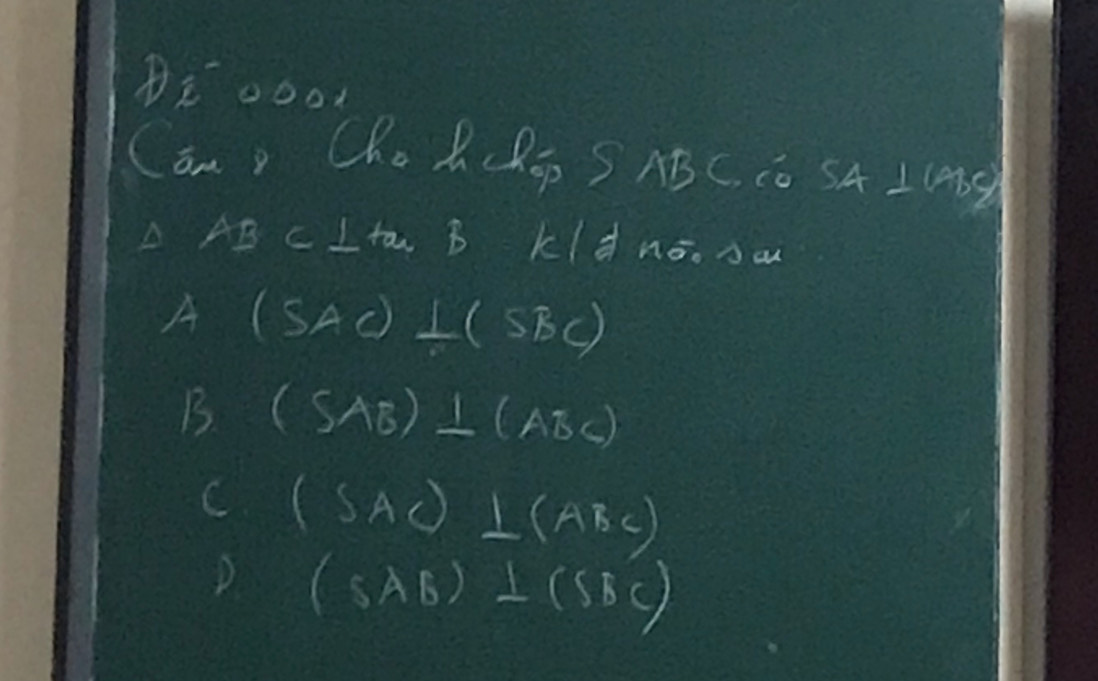 Đề 0001
Câu 8 Cho h chóp S ABC có SA ⊥ (ABC)
Δ ABC ⊥ tại B k/đ nào sai
A (SAC) ⊥ (SBC)
B. (SAB) ⊥ (ABC)
C. (SAC) ⊥ (ABC)
D. (SAB) ⊥ (SBC)